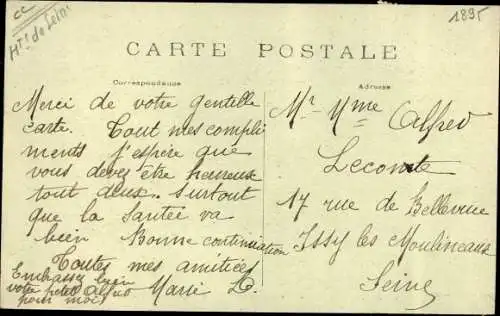 CC
Hts de Seine
1895
CARTE POSTALE
Correspondance
Adresse
Merci de votre gentille
carte. Tout mes compli
ments j'espère que
vous devez être heureux
tout deux. surtout
que la Santée va
bien Bonne continuation
Toutes mes amitiées
Embrassez bien
votre petit Alfred
pour moi
Marie L.
Mr. Mme Alfred
Lecomte
17 rue de Bellevue
Issy les Moulineaux
Seine